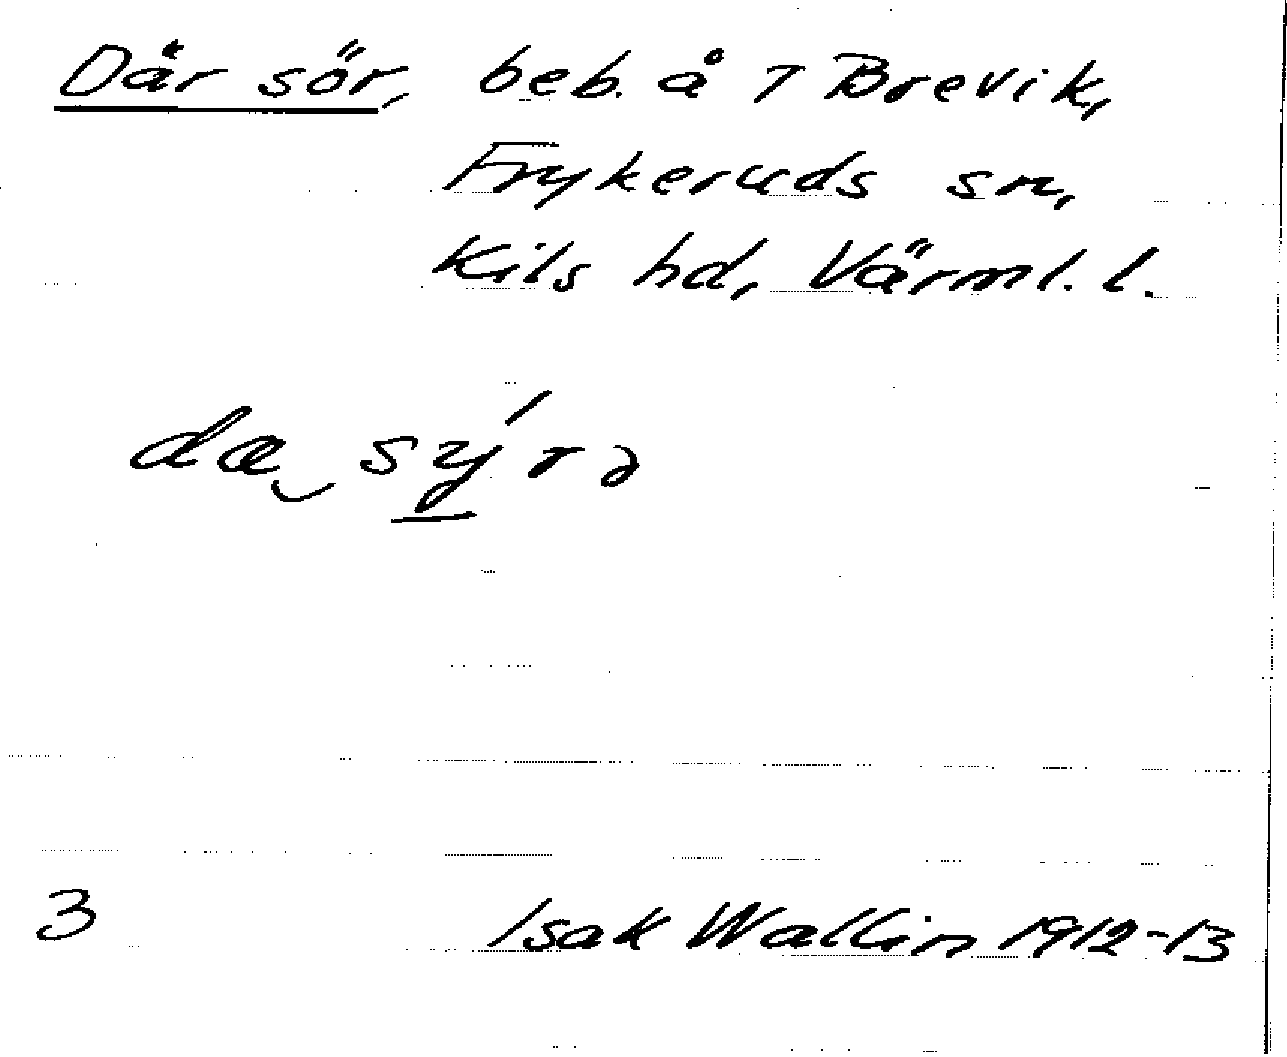 Där sör, beb. å 7 Brevik,
Frykeruds sn,
Kils hd, Värml. l.
dæ sý́rə
3
Isak Wallin 1912-13